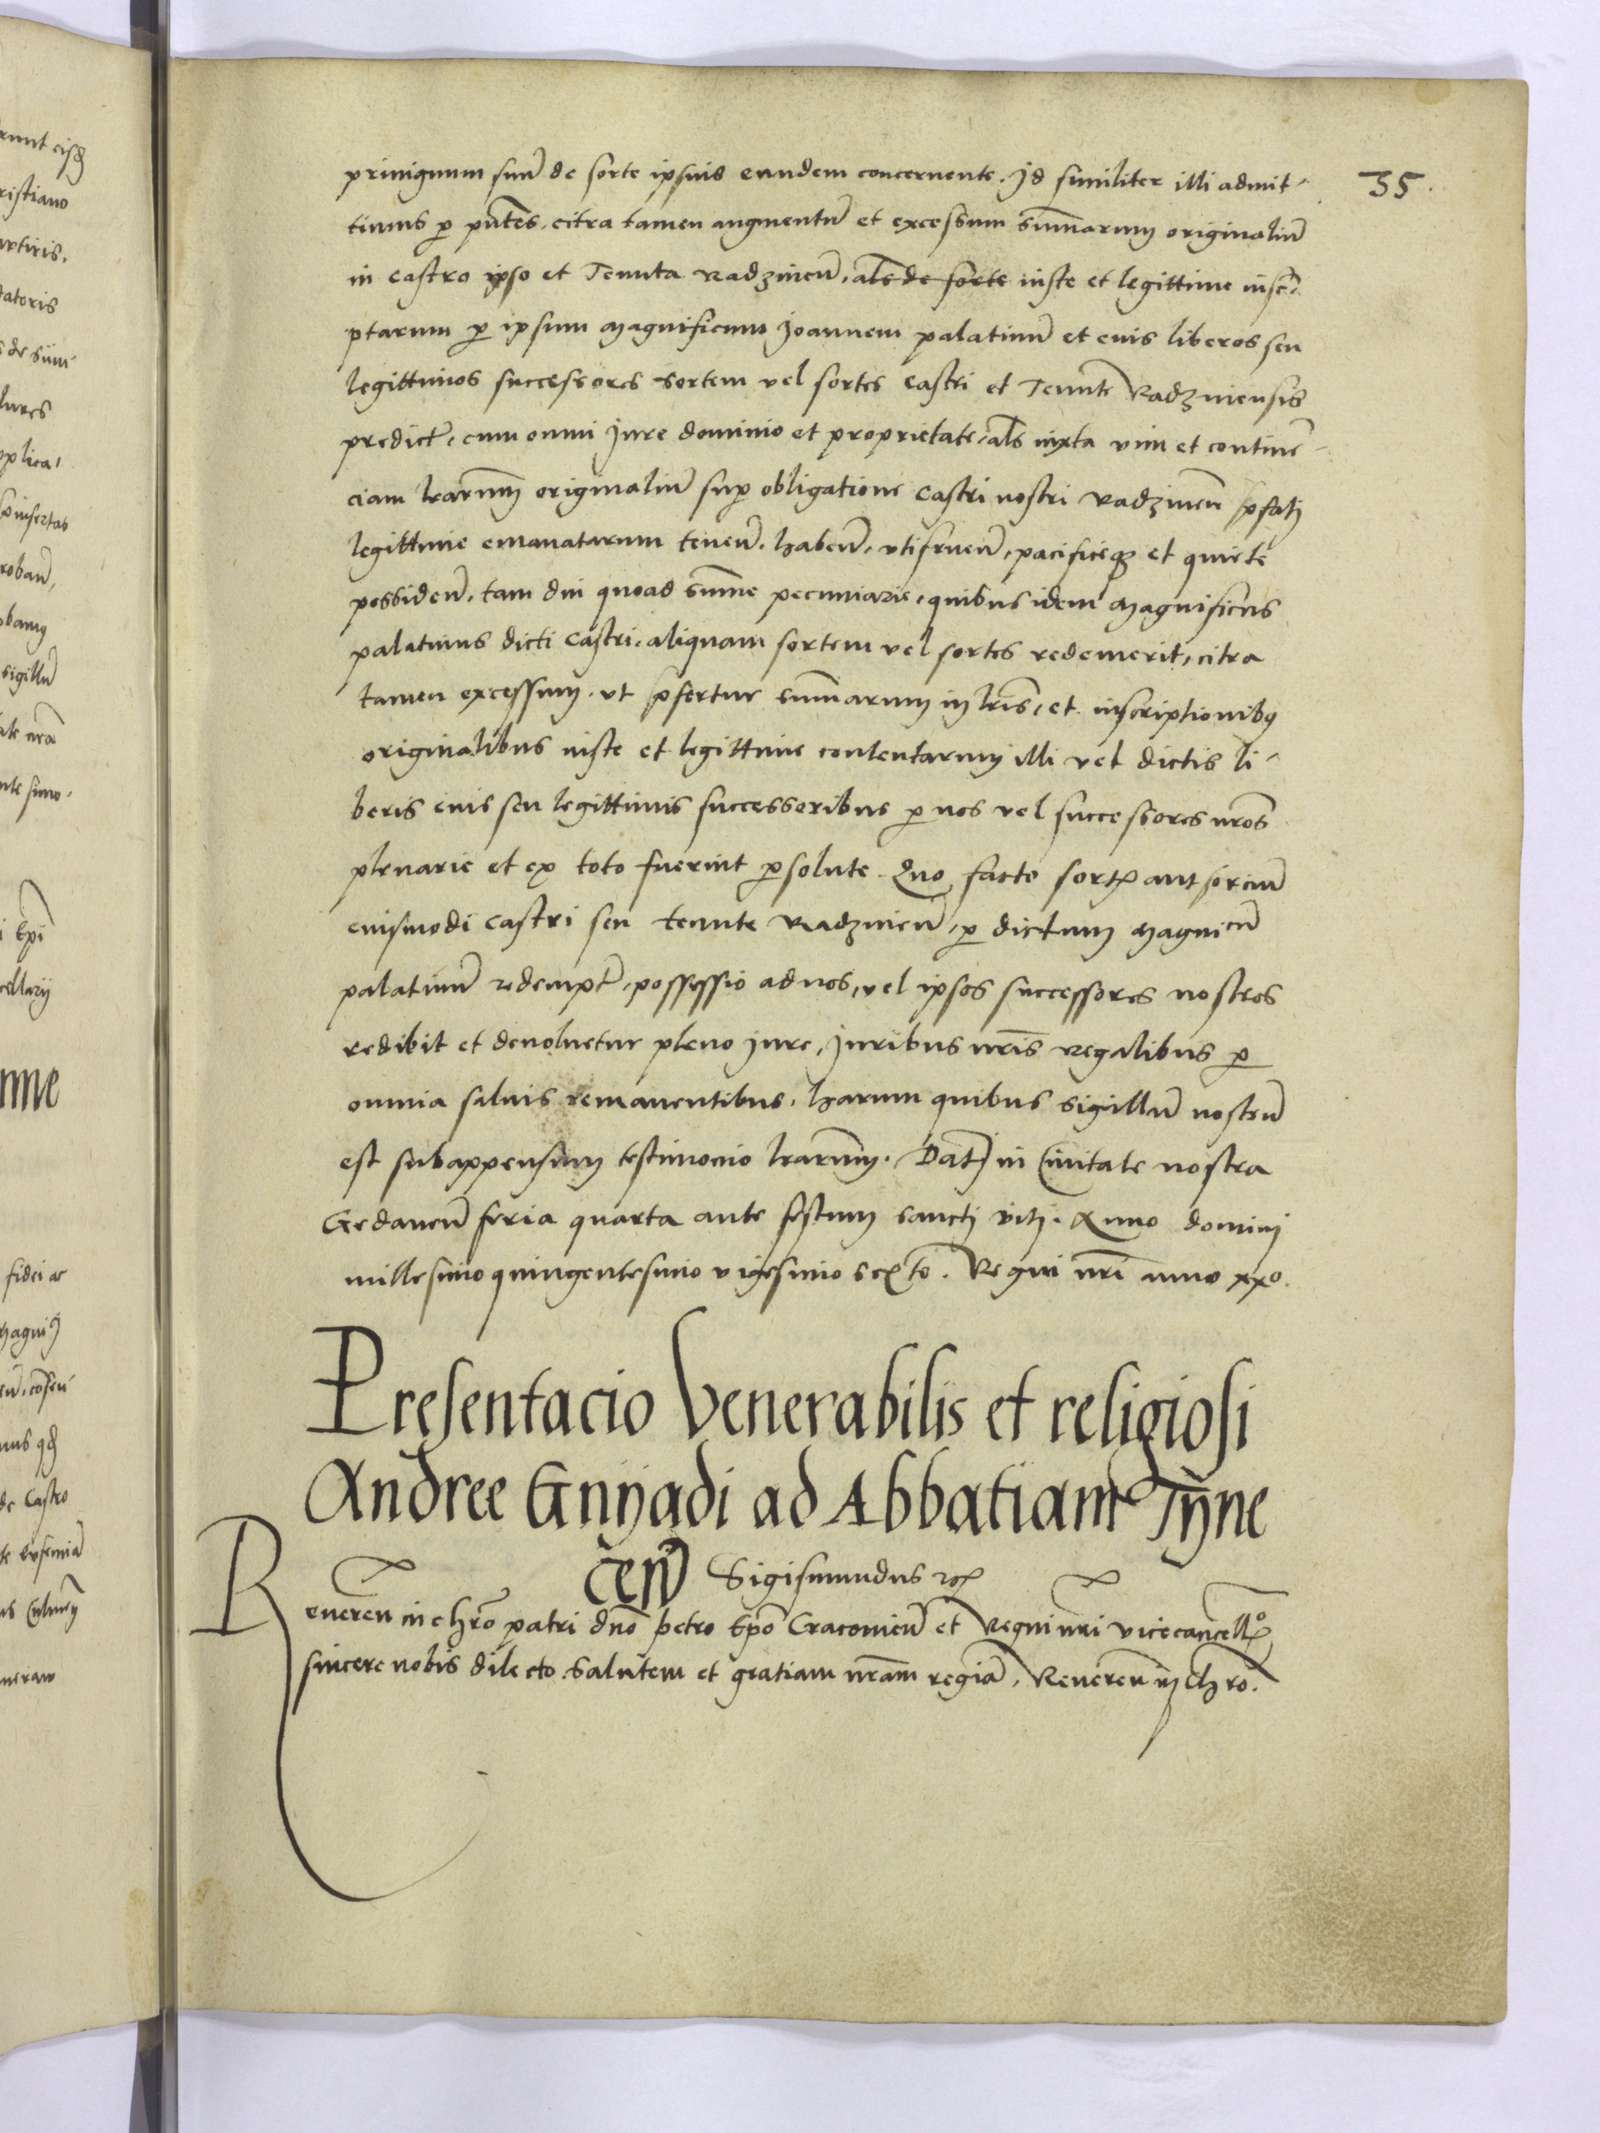 35.
privignum suũ de sorte ipsius eundem concernente. Id similiter illi admit-
timus p pñtes, citra tamen augmentũ et excessum summarum originaliũ
in castro ipso et Tenuta Radzineñ, als de sorte iuste et legittime inscri-
ptarum p ipsum Magnificum Joannem palatinũ et eius liberos seu
legittimos successores sortem vel sortes castri et Tenute Radziniensis
predict, cum omni Jure dominio et proprietate, als iuxta vim et continẽ-
ciam lrarum originaliũ sup obligatione castri nostri Radzineñ pfati
legittime emanatarum teneñ. habeñ. utifrueñ, pacificeq3 et quiete
possideñ, tam diu quoad summe pecuniarie, quibus idem Magnificus
palatinus dicti Castri, aliquam sortem vel sortes redemerit, citra
tamen excessum. ut pfertur summarum in lris, et inscriptionibq
originalibus iuste et legittime contentarum illi vel dictis li-
beris eius seu legittimis successoribus p nos vel successores nros
plenarie et ex toto fuerint psolute. Quo facto sortis aut sorciũ
eiusmodi castri seu tenute Radzineñ, p dictum Magnicũ
palatinũ redempt, possessio ad nos, vel ipsos successores nostros
redibit et devoluetur pleno Jure, Juribus nris Regalibus p
omnia salvis remanentibus. harum quibus sigillũ nostrũ
est subappensum testimonio lrarum. Dat in Civitate nostra
Gedaneñ feria quarta ante festum sancti Viti. Anno domini
millesimo quingentesimo vigesimo sexto. Regni nri anno xxo.
Presentacio Venerabilis et religiosi
Andree Gnyadi ad Abbatiam Tyne
ceñ Sigismundus rex
Revereñ in chro patri dño petro Epo Cracovieñ et Regni nri vicecancellº
sincere nobis dilecto. Salutem et gratiam nram regiã. Revereñ in Chro.